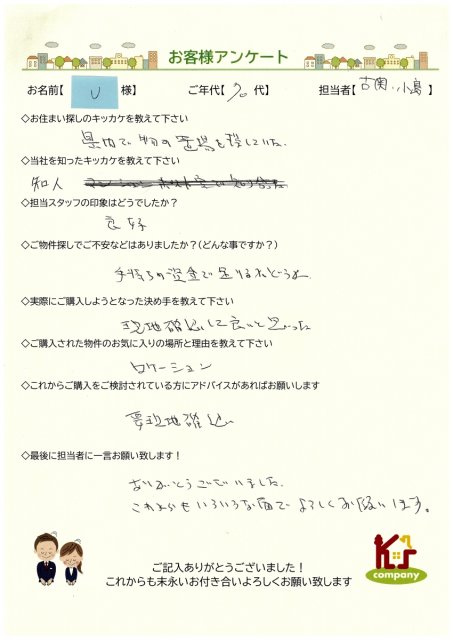 お客様アンケート
お名前【 U 様】 ご年代【70代】 担当者【古関、小島】
◇お住まい探しのキッカケを教えて下さい
県内で物の置場を探していた。
◇当社を知ったキッカケを教えて下さい
知人
◇担当スタッフの印象はどうでしたか？
良好
◇ご物件探しでご不安などはありましたか？(どんな事ですか？)
手持ちの資金で足りるかどうか
◇実際にご購入しようとなった決め手を教えて下さい
現地確認して良いと思った
◇ご購入された物件のお気に入りの場所と理由を教えて下さい
ロケーション
◇これからご購入をご検討されている方にアドバイスがあればお願いします
要現地確認
◇最後に担当者に一言お願い致します！
ありがとうございました。
これからもいろいろな面でよろしくお願いします。
ご記入ありがとうございました！
これからも末永いお付き合いよろしくお願い致します
K's
company